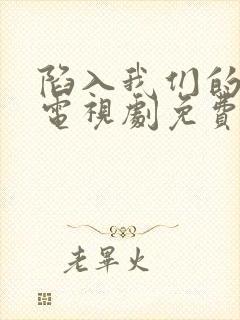 陷入我们的
電視劇免費
老畢火